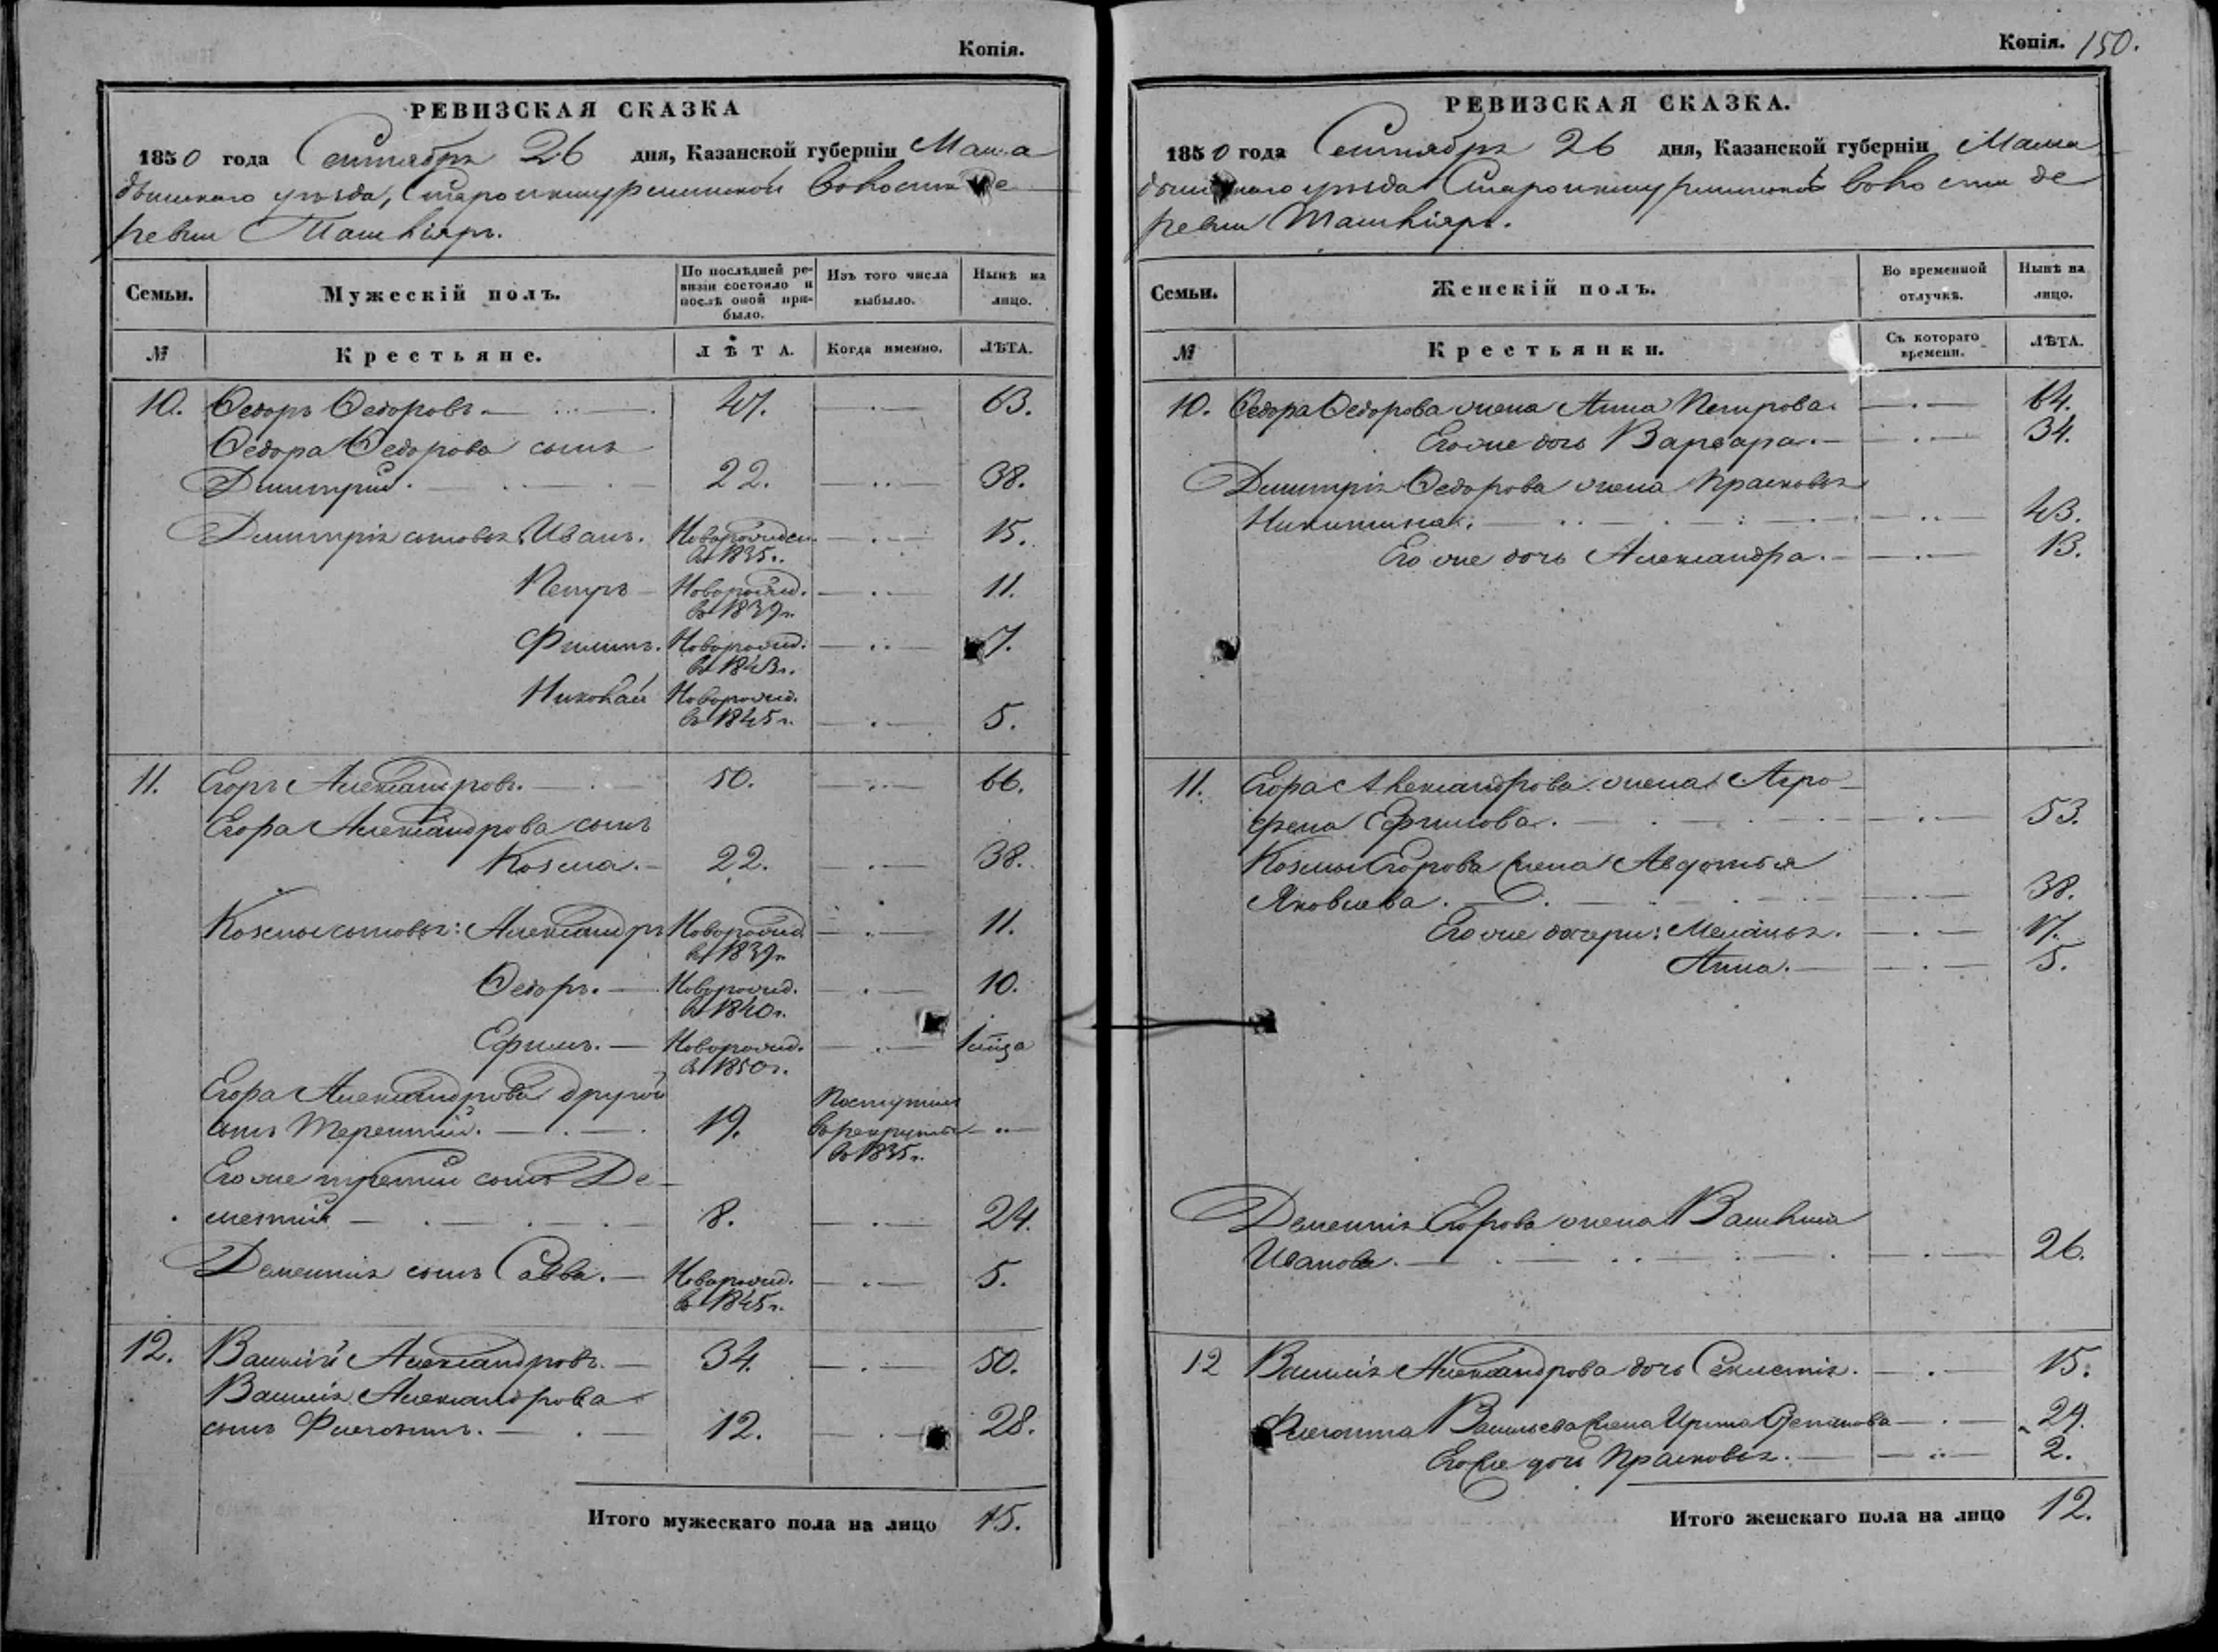 Копія.
РЕВИЗСКАЯ СКАЗКА
1850 года Сентября 26 дня, Казанской губерніи Мама
дышскаго уѣзда, волости де
ревни Ташкіяръ.
Семьи.
Мужескій полъ.
По послѣдней ре-
визіи состояло и
послѣ оной при-
было.
Изъ того числа
выбыло.
Нынѣ на
лицо.
№
Крестьяне.
ЛѢТА.
Когда именно.
ЛѢТА.
10. Ѳедоръ Ѳедоровъ. 47. 63.
Ѳедора Ѳедорова сынъ
Димитрій. 22. 38.
Димитрія сыновья Иванъ. Новорожден. 15.
въ 1835г.
Петръ Новорожд. 11.
въ 1839г.
Филипъ. Новорожд. 7.
въ 1843г.
Николай Новорожд.
въ 1845г. 5.
11. Егоръ Александровъ. 50. 66.
Егора Александрова сынъ
Козма. 22. 38.
Козмы сыновья: Александръ Новорожд. 11.
въ 1839г.
Ѳедоръ. Новорожд. 10.
въ 1840г.
Ефимъ. Новорожд.
въ 1850г.
Егора Александрова другой Поступилъ
сынъ Терентій. 19. в рекруты
въ 1835г.
Его же третій сынъ Де-
ментій 8. 24.
Дементія сынъ Савва. Новорожд. 5.
въ 1845г.
12. Василій Александровъ. 34. 50.
Василія Александрова
сынъ Флегонтъ. 12. 28.
Итого мужескаго пола на лицо 15.
Копія. 150.
РЕВИЗСКАЯ СКАЗКА.
1850 года Сентября 26 дня, Казанской губерніи Мама
дышскаго уѣзда волости де
ревни Ташкіяръ.
Семьи.
Женскій полъ.
Во временной
отлучкѣ.
Нынѣ на
лицо.
№
Крестьянки.
Съ котораго
времени.
ЛѢТА.
10. Ѳедора Ѳедорова жена Анна Петрова. 64.
Его же дочь Варвара. 34.
Димитрія Ѳедорова жена Прасковья
Никитина. 43.
Его же дочь Александра. 13.
11. Егора Александрова жена Агро-
фена Ефимова. 53.
Козмы Егорова жена Авдотья
Яковлева. 38.
Его же дочери: Меланья. 17.
Анна. 5.
Дементія Егорова жена
Иванова. 26.
12 Василія Александрова дочь 15.
Флегонта Васильева жена Ирина Степанова 29.
Его же дочь Прасковья. 2.
Итого женскаго пола на лицо 12.